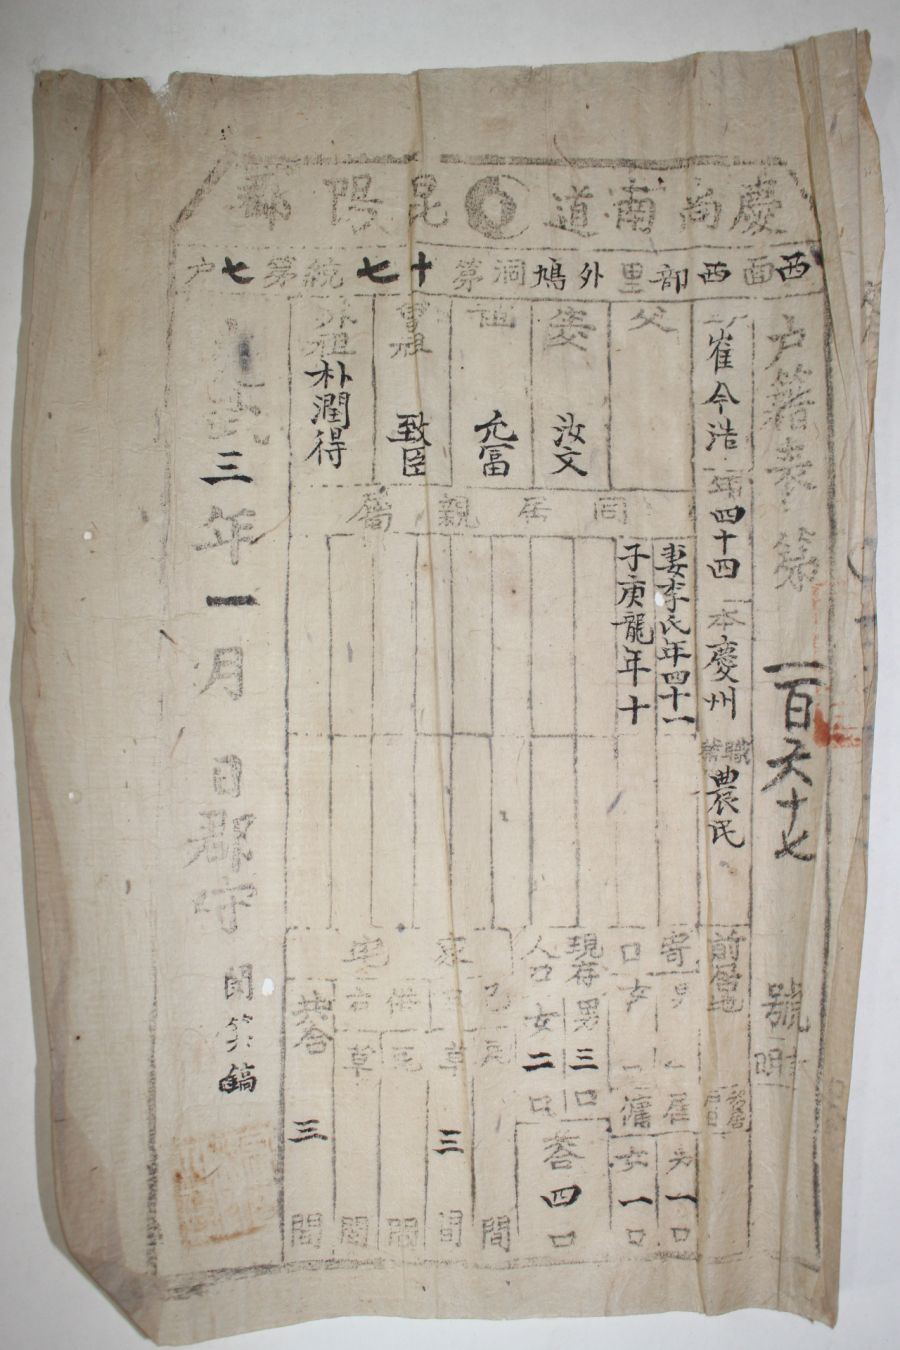 慶尚南道 昆陽郡
西面西部里外鳩洞第十七統第七戶
戶籍表第一百六十七號
崔今浩 年四十四 本慶州 職業農民
前居地
移居
父
生父 汝文
祖 允富
曾祖 致臣
外祖 朴潤得
同居親屬
妻李氏年四十一
子庚龍年十
寄口 男 女
雇傭 男一口 女一口
現存人口 男三口 女二口
家宅 己 瓦 間
草三間
借 瓦 間
草 間
共合三間
武三年一月 日郡守